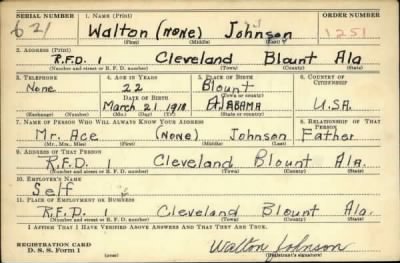 SERIAL NUMBER 1. NAME (Print) ORDER NUMBER
621 Walton (NONE) Johnson 1251
(First) (Middle) (Last)
2. ADDRESS (Print)
R.F.D. 1 Cleveland Blount Ala
(Number and street or R. F. D. number) (Town) (County) (State)
3. TELEPHONE 4. AGE IN YEARS 5. PLACE OF BIRTH 6. COUNTRY OF CITIZENSHIP
None 22 Blount
DATE OF BIRTH (Town or county)
March 21, 1918 ALABAMA U.S.A.
(Exchange) (Number) (Mo.) (Day) (Yr.) (State or country)
7. NAME OF PERSON WHO WILL ALWAYS KNOW YOUR ADDRESS 8. RELATIONSHIP OF THAT PERSON
Mr. Ace (NONE) Johnson Father
(Mr., Mrs., Miss) (First) (Middle) (Last)
9. ADDRESS OF THAT PERSON
R.F.D. 1 Cleveland Blount Ala.
(Number and street or R. F. D. number) (Town) (County) (State)
10. EMPLOYER'S NAME
Self
11. PLACE OF EMPLOYMENT OR BUSINESS
R.F.D. 1 Cleveland Blount Ala.
(Number and street or R. F. D. number) (Town) (County) (State)
I AFFIRM THAT I HAVE VERIFIED ABOVE ANSWERS AND THAT THEY ARE TRUE.
REGISTRATION CARD
D. S. S. Form 1 Walton Johnson
(over) (Registrant's signature)